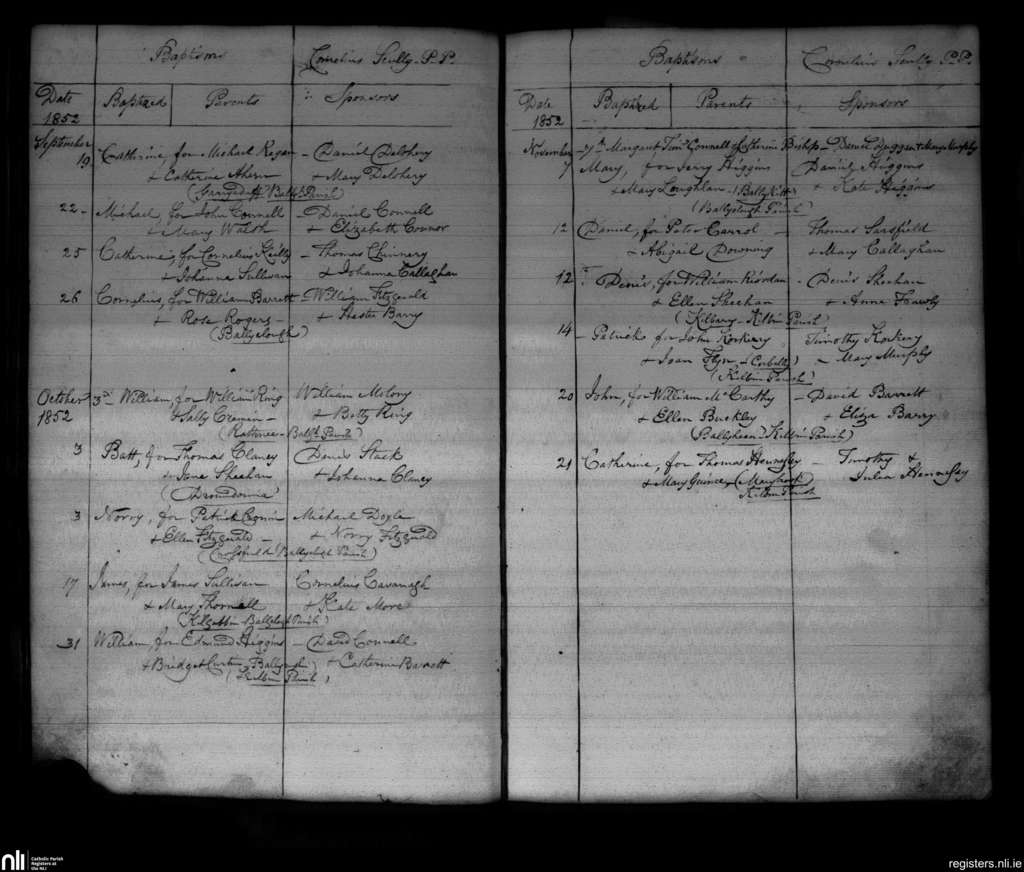 Baptisms Cornelius Scully P.P.
Date Baptized Parents Sponsors
1852
September
19 Catherine, for Michael Regan - Daniel Delohery
+ Catherine Ahern + Mary Delohery
(Garryduff Ballyh Parish)
22 - Michael, for John Connell - Daniel Connell
+ Mary Walsh + Elizabeth Connor
25 Catherine, for Cornelius Reilly - Thomas Chinnery
+ Johanna Sullivan + Johanna Callaghan
26 Cornelius, for William Barrett - William Fitzgerald
+ Rose Rogers - + Hester Barry
(Ballyclough)
October 3rd William, for William Ring William Molony
1852 + Sally Cremin - + Betty Ring
Parish)
3 Batt, for Thomas Clancy Denis Stack
+ Jane Sheehan + Johanna Clancy
(Dromdownia)
3 Norry, for Patrick Cronin Michael Doyle
+ Ellen Fitzgerald - + Norry Fitzgerald
Ballyclough Parish)
17 James, for James Sullivan Cornelius Cavanagh
+ Mary Thornell + Kate More
Ballyclough Parish)
31 William, for Edmund Higgins - David Connell
+ Bridget Curtin + Catherine Barrett
(Kilbrin Parish)
Baptisms Cornelius Scully P.P.
Date Baptized Parents Sponsors
1852
November - 7th Margaret Timy Connell & Catherine Bishop - Daniel Duggan + Mary Murphy
7 Mary, for Jerry Higgins Daniel Higgins
+ Mary Loughlan - + Kate Higgins
(Ballyclough Parish)
12 Daniel, for Peter Carrol - Thomas Sarsfield
+ Abigail Downing + Mary Callaghan
12 Denis, for William Riordan - Denis Sheehan
+ Ellen Sheehan + Anne
(Kilbarry - Kilbrin Parish)
14 - Patrick for John Korkery Timothy Korkery
+ Joan Flyn - - Mary Murphy
(Kilbrin Parish)
20 John, for William McCarthy - David Barrett
+ Ellen Buckley + Eliza Barry
(Ballyheen) Kilbrin Parish)
21 Catherine, for Thomas Hennessy - Timothy +
+ Mary Quince Julia Hennessy
Kilbrin Parish
nli
Catholic Parish
Registers at
the NLI
registers.nli.ie